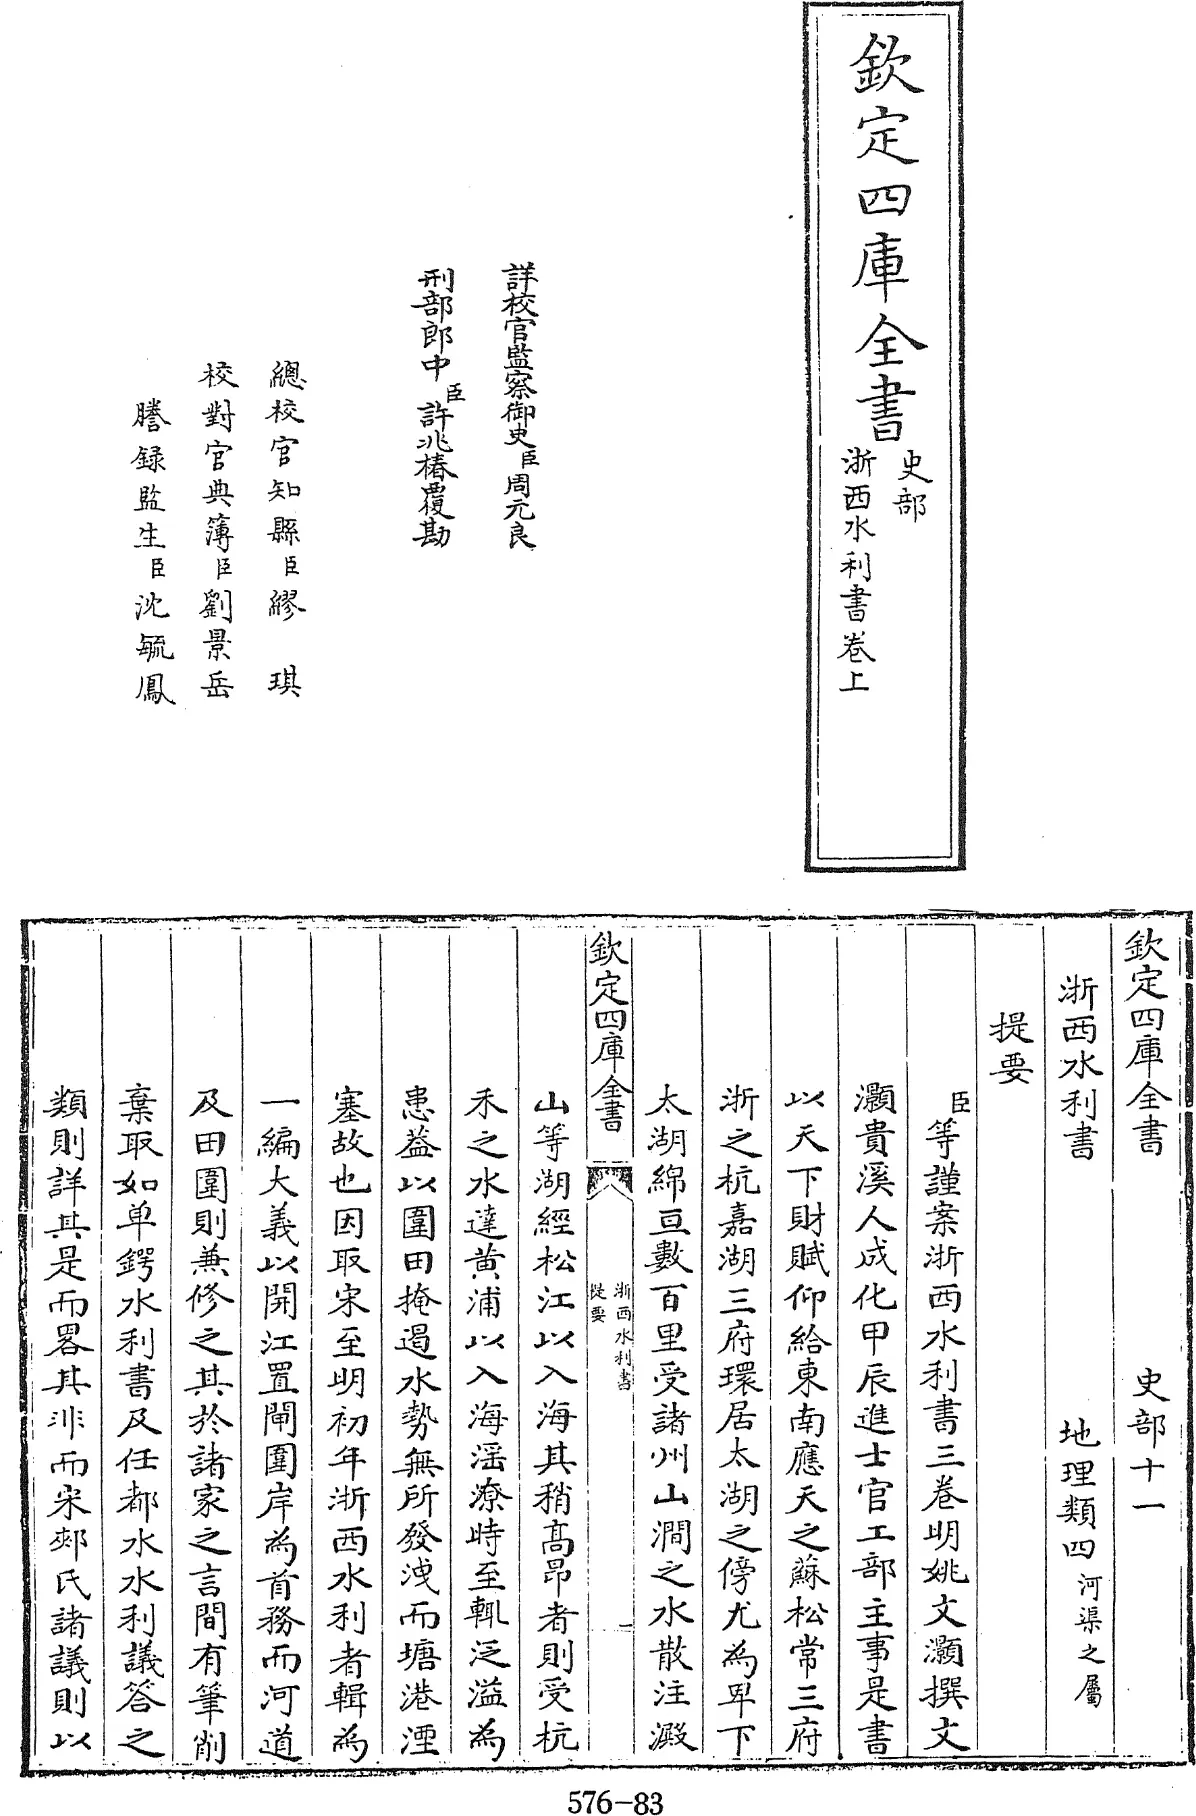 欽定四庫全書
史部
浙西水利書卷上
詳校官監察御史臣周元良
刑部郎中臣許兆椿覆勘
總校官知縣臣繆琪
校對官典簿臣劉景岳
謄錄監生臣沈毓鳳
欽定四庫全書 史部十一
浙西水利書 地理類四河渠之屬
提要
臣等謹案浙西水利書三卷明姚文灝撰文
灝貴溪人成化甲辰進士官工部主事是書
以天下財賦仰給東南應天之蘇松常三府
浙之杭嘉湖三府環居太湖之傍尤為卑下
太湖綿亘數百里受諸州山澗之水散注澱
欽定四庫全書
浙西水利書
提要
一
山等湖經松江以入海其稍髙昂者則受杭
禾之水達黄浦以入海滛潦時至輒泛溢為
患葢以圍田掩遏水勢無所發洩而塘港湮
塞故也因取宋至明初年浙西水利者輯為
一編大義以開江置閘圍岸為首務而河道
及田圍則兼修之其於諸家之言間有筆削
棄取如单鍔水利書及任都水水利議答之
類則詳其是而畧其非而宋郟氏諸議則以
576-83